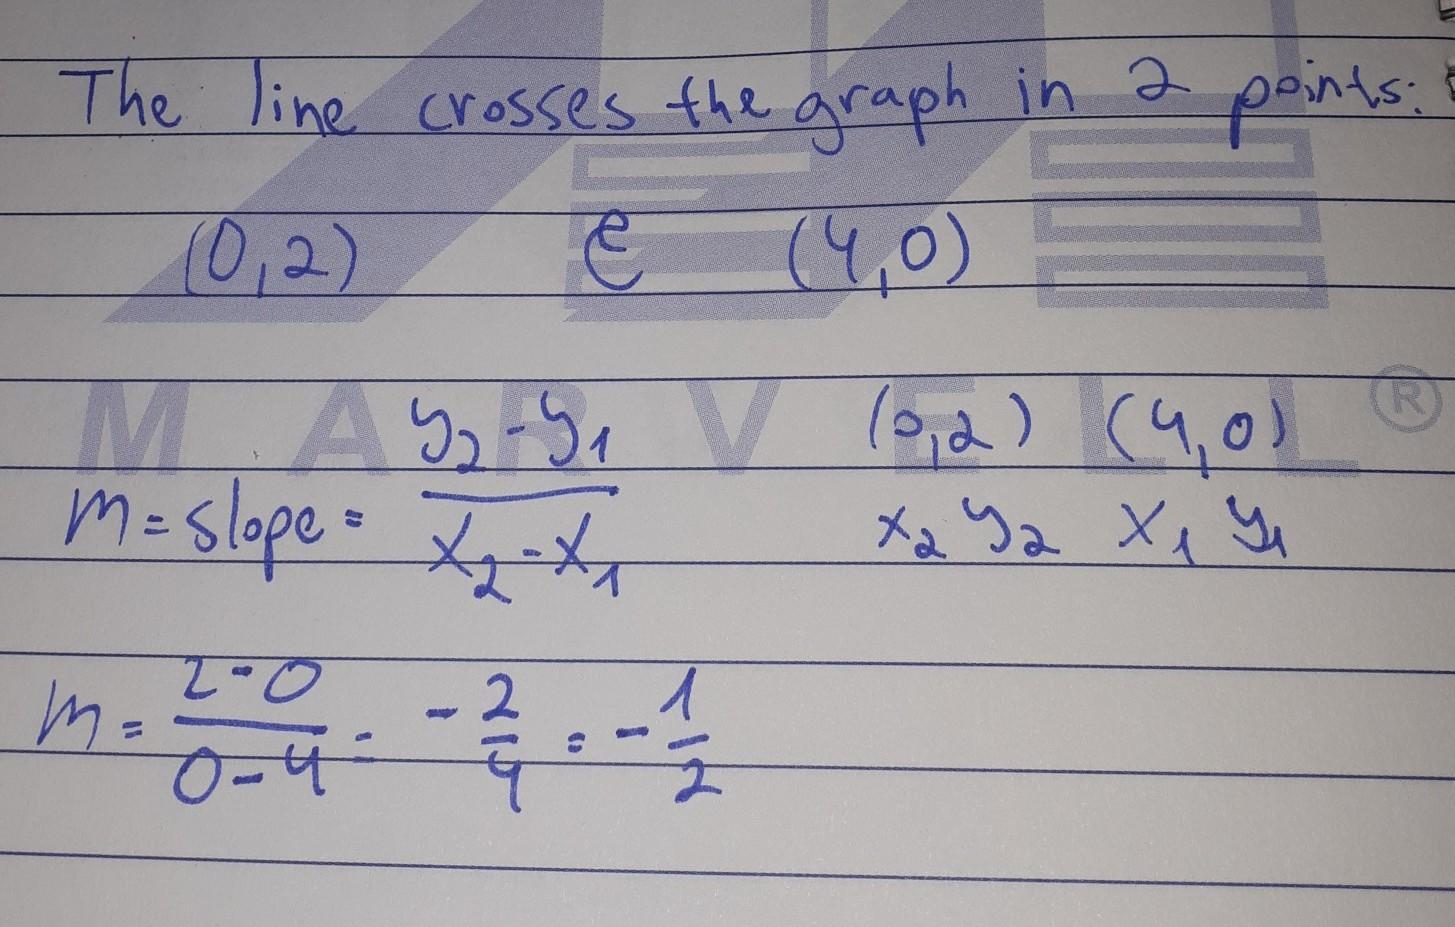 The line crosses the graph in 2 points:
(0,2) e (4,0)
MARVELL®
m = slope = y₂-y₁/x₂-x₁ (0,2) (4,0)
x₂ y₂ x₁ y₁
m = 2-0/0-4 = -2/4 = -1/2